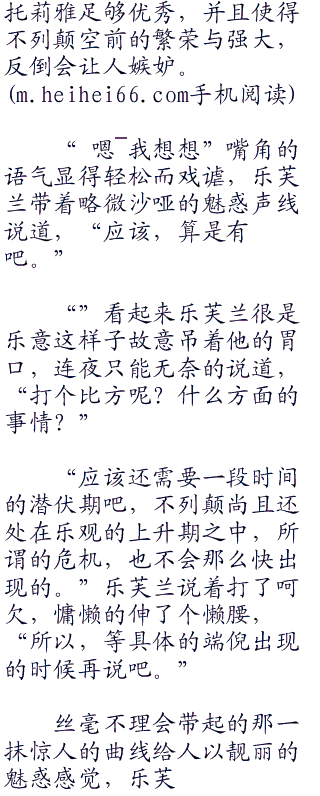 托莉雅足够优秀，并且使得
不列颠空前的繁荣与强大，
反倒会让人嫉妒。
(m.heihei66.com手机阅读)
“ 嗯¯我想想”嘴角的
语气显得轻松而戏谑，乐芙
兰带着略微沙哑的魅惑声线
说道，“应该，算是有
吧。”
“”看起来乐芙兰很是
乐意这样子故意吊着他的胃
口，连夜只能无奈的说道，
“打个比方呢？什么方面的
事情？”
“应该还需要一段时间
的潜伏期吧，不列颠尚且还
处在乐观的上升期之中，所
谓的危机，也不会那么快出
现的。”乐芙兰说着打了呵
欠，慵懒的伸了个懒腰，
“所以，等具体的端倪出现
的时候再说吧。”
丝毫不理会带起的那一
抹惊人的曲线给人以靓丽的
魅惑感觉，乐芙